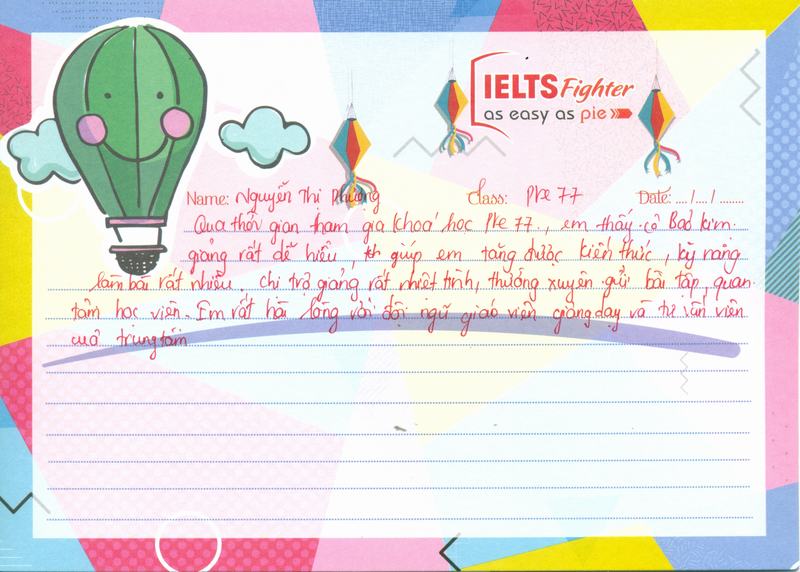 IELTS Fighter
as easy as pie
Name: Nguyễn Thị Phượng Class: Pre 77 Date: .... /.... / ........
Qua thời gian tham gia khoá học Pre 77, em thấy cô Bảo Kim
giảng rất dễ hiểu, giúp em tăng được kiến thức, kỹ năng
làm bài rất nhiều. Chị trợ giảng rất nhiệt tình, thường xuyên gửi bài tập, quan
tâm học viên. Em rất hài lòng với đội ngũ giáo viên giảng dạy và tư vấn viên
của trung tâm